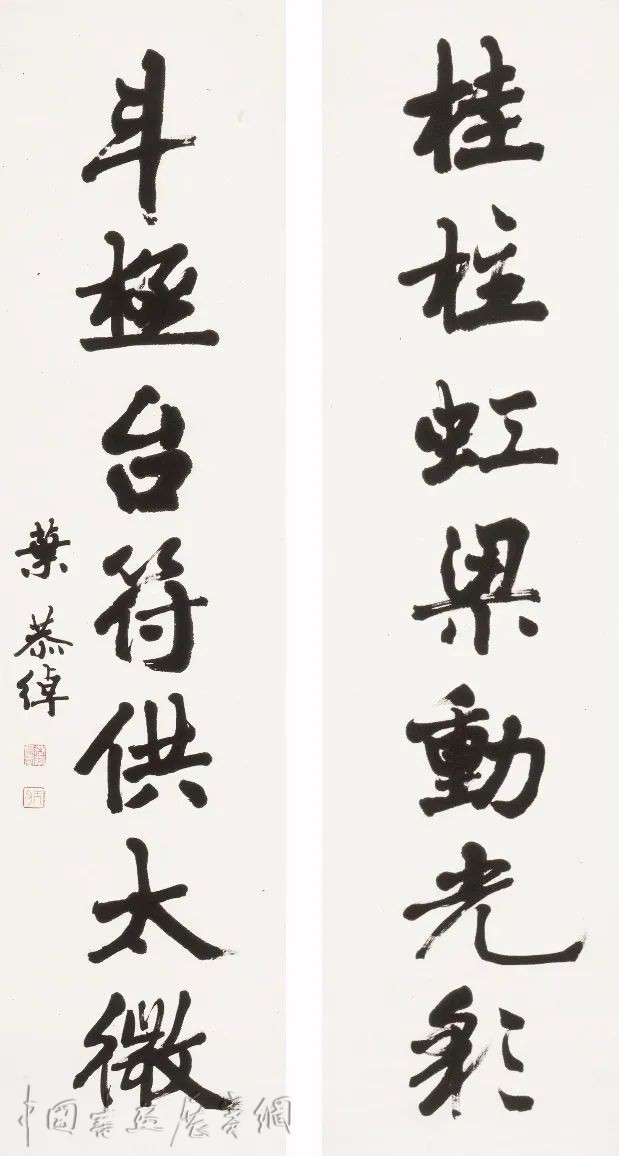 桂柱虹梁動光彩
斗極台符供太微
葉恭綽
中國書画展賣網